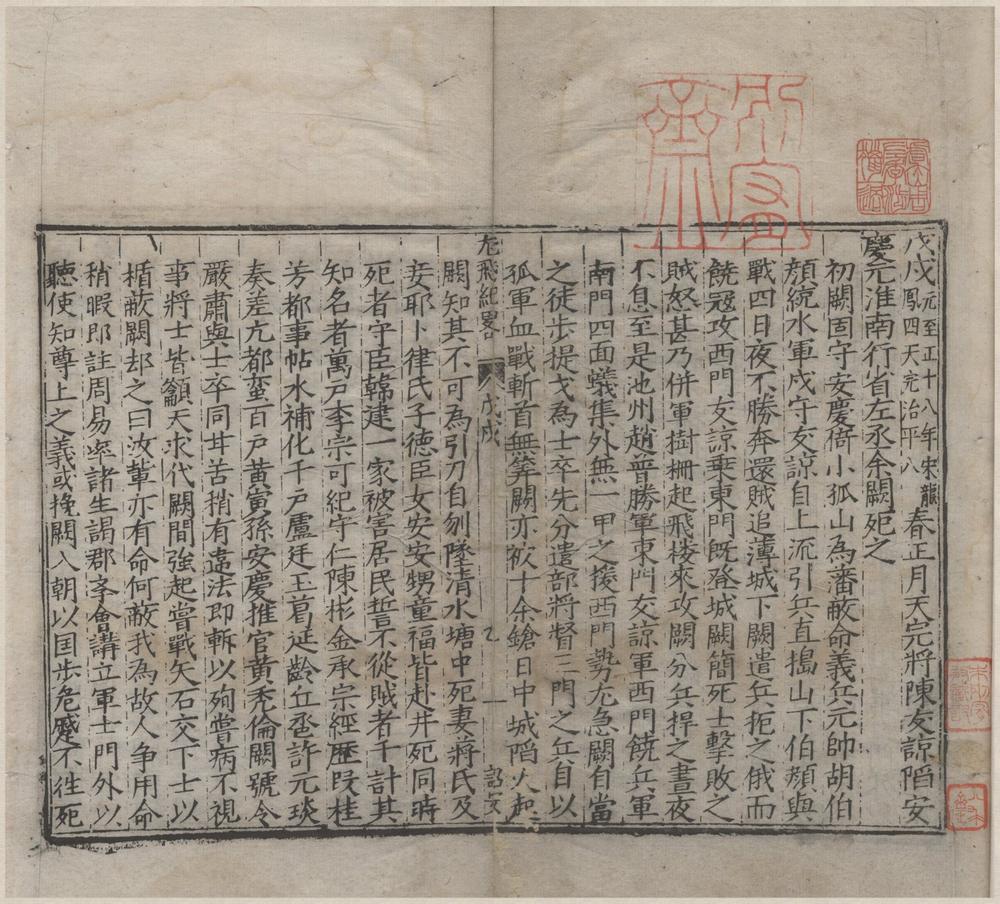 戊戌元至正十八年宋龍鳳四天完治平八春正月天完將陳友諒陷安
慶元淮南行省左丞余闕死之
初闕固守安慶倚小孤山為藩蔽命義兵元帥胡伯
顏統水軍戍守友諒自上流引兵直搗山下伯顏與
戰四日夜不勝奔還賊追薄城下闕遣兵拒之俄而
饒寇攻西門友諒乘東門既登城闕簡死士擊敗之
賊怒甚乃併軍樹柵起飛楼來攻闕分兵捍之晝夜
不息至是池州趙普勝軍東門友諒軍西門饒兵軍
南門四面蟻集外無一甲之援西門勢尤急闕自當
之徒步提戈為士卒先分遣部將督三門之兵自以
孤軍血戰斬首無筭闕亦被十余鎗日中城陷火起
龙飛紀畧 戊戌 乙 一
闕知其不可為引刀自刎墜清水塘中死妻蔣氏及
妾耶卜律氏子德臣女安安甥童福皆赴井死同時
死者守臣韓建一家被害居民誓不從賊者千計其
知名者萬戸李宗可紀守仁陳彬金承宗經歷段桂
芳都事帖水補化千戸盧廷玉葛延齡丘巹許元琰
奏差亢都蛮百戸黃寅孫安慶推官黃秃倫闕號令
嚴肅與士卒同甘苦稍有違法即斬以殉嘗病不視
事將士皆籲天求代闕間強起嘗戰矢石交下士以
楯蔽闕却之曰汝輩亦有命何蔽我為故人争用命
稍暇即註周易率諸生謁郡孝會講立軍士門外以
聽使知尊上之義或挽闕入朝以国步危蹙不往死